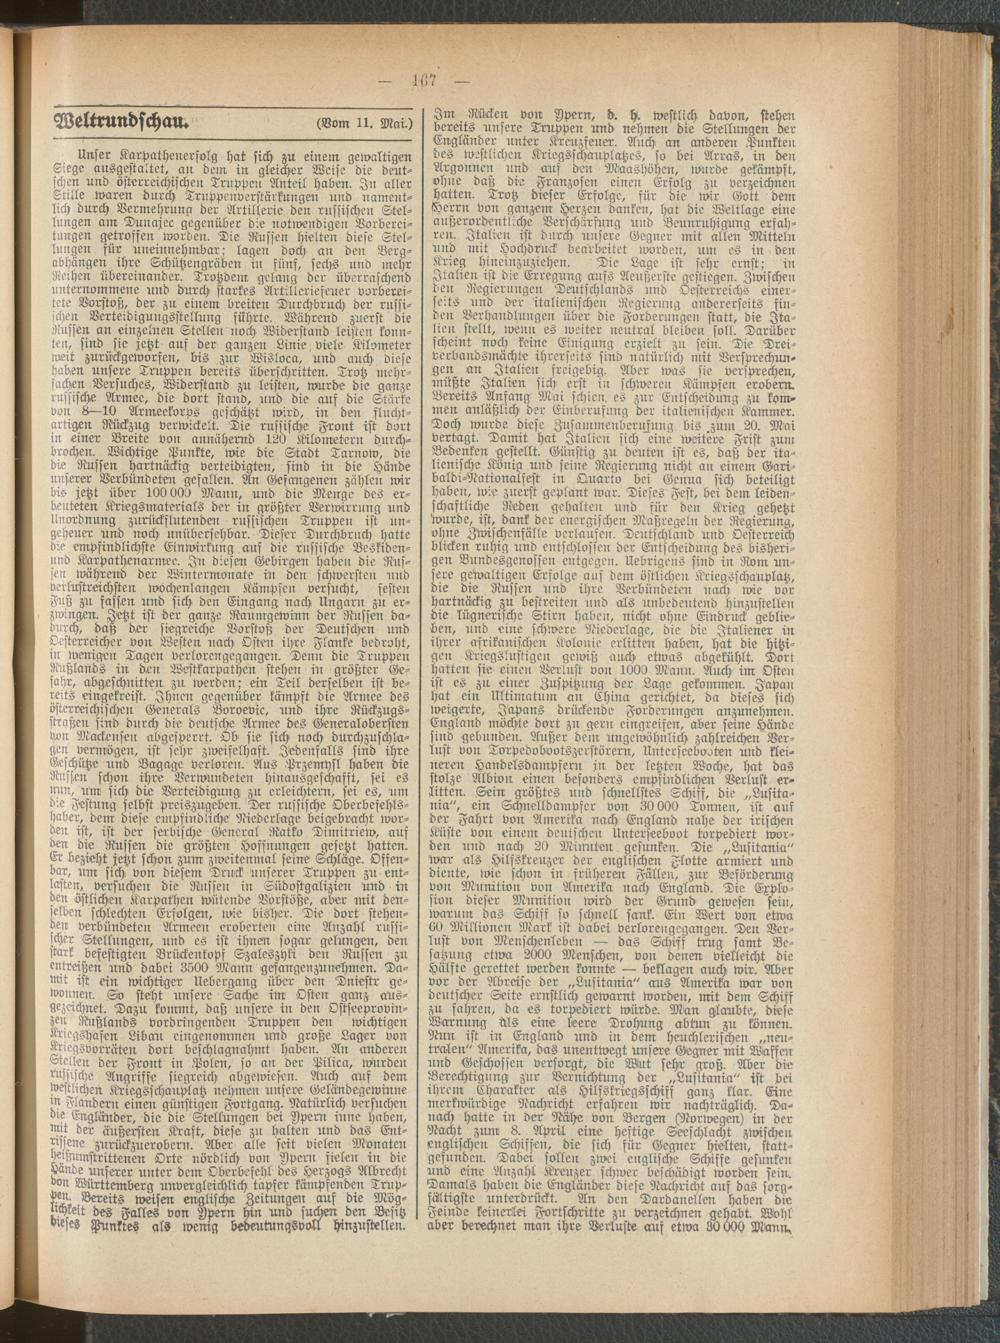 — 167 —
Weltrundschau. (Vom 11. Mai.)
Unser Karpathenerfolg hat sich zu einem gewaltigen
Siege ausgestaltet, an dem in gleicher Weise die deut-
schen und österreichischen Truppen Anteil haben. In aller
Stille waren durch Truppenverstärkungen und nament-
lich durch Vermehrung der Artillerie den russischen Stel-
lungen am Dunajec gegenüber die notwendigen Vorberei-
tungen getroffen worden. Die Russen hielten diese Stel-
lungen für uneinnehmbar; lagen doch an den Berg-
abhängen ihre Schützengräben in fünf, sechs und mehr
Reihen übereinander. Trotzdem gelang der überraschend
unternommene und durch starkes Artilleriefeuer vorberei-
tete Vorstoß, der zu einem breiten Durchbruch der russi-
schen Verteidigungsstellung führte. Während zuerst die
Russen an einzelnen Stellen noch Widerstand leisten konn-
ten, sind sie jetzt auf der ganzen Linie viele Kilometer
weit zurückgeworfen, bis zur Wisloca, und auch diese
haben unsere Truppen bereits überschritten. Trotz mehr-
fachen Versuches, Widerstand zu leisten, wurde die ganze
russische Armee, die dort stand, und die auf die Stärke
von 8—10 Armeekorps geschätzt wird, in den flucht-
artigen Rückzug verwickelt. Die russische Front ist dort
in einer Breite von annähernd 120 Kilometern durch-
brochen. Wichtige Punkte, wie die Stadt Tarnow, die
die Russen hartnäckig verteidigten, sind in die Hände
unserer Verbündeten gefallen. An Gefangenen zählen wir
bis jetzt über 100 000 Mann, und die Menge des er-
beuteten Kriegsmaterials der in größter Verwirrung und
Unordnung zurückflutenden russischen Truppen ist un-
geheuer und noch unübersehbar. Dieser Durchbruch hatte
die empfindlichste Einwirkung auf die russische Beskiden-
und Karpathenarmee. In diesen Gebirgen haben die Rus-
sen während der Wintermonate in den schwersten und
verlustreichsten wochenlangen Kämpfen versucht, festen
Fuß zu fassen und sich den Eingang nach Ungarn zu er-
zwingen. Jetzt ist der ganze Raumgewinn der Russen da-
durch, daß der siegreiche Vorstoß der Deutschen und
Oesterreicher von Westen nach Osten ihre Flanke bedroht,
in wenigen Tagen verlorengegangen. Denn die Truppen
Rußlands in den Westkarpathen stehen in größter Ge-
fahr, abgeschnitten zu werden; ein Teil derselben ist be-
reits eingekreist. Ihnen gegenüber kämpft die Armee des
österreichischen Generals Boroevic, und ihre Rückzugs-
straßen sind durch die deutsche Armee des Generalobersten
von Mackensen abgesperrt. Ob sie sich noch durchzuschla-
gen vermögen, ist sehr zweifelhaft. Jedenfalls sind ihre
Geschütze und Bagage verloren. Aus Przemysl haben die
Russen schon ihre Verwundeten hinausgeschafft, sei es
nun, um sich die Verteidigung zu erleichtern, sei es, um
die Festung selbst preiszugeben. Der russische Oberbefehls-
haber, dem diese empfindliche Niederlage beigebracht wor-
den ist, ist der serbische General Ratko Dimitriew, auf
den die Russen die größten Hoffnungen gesetzt hatten.
Er bezieht jetzt schon zum zweitenmal seine Schläge. Offen-
bar, um sich von diesem Druck unserer Truppen zu ent-
lasten, versuchen die Russen in Südostgalizien und in
den östlichen Karpathen wütende Vorstöße, aber mit den-
selben schlechten Erfolgen, wie bisher. Die dort stehen-
den verbündeten Armeen eroberten eine Anzahl russi-
scher Stellungen, und es ist ihnen sogar gelungen, den
stark befestigten Brückenkopf Szaleszyki den Russen zu
entreißen und dabei 3500 Mann gefangenzunehmen. Da-
mit ist ein wichtiger Uebergang über den Dniestr ge-
wonnen. So steht unsere Sache im Osten ganz aus-
gezeichnet. Dazu kommt, daß unsere in den Ostseeprovin-
zen Rußlands vordringenden Truppen den wichtigen
Kriegshafen Libau eingenommen und große Lager von
Kriegsvorräten dort beschlagnahmt haben. An anderen
Stellen der Front in Polen, so an der Pilica, wurden
russische Angriffe siegreich abgewiesen. Auch auf dem
westlichen Kriegsschauplatz nehmen unsere Geländegewinne
in Flandern einen günstigen Fortgang. Natürlich versuchen
die Engländer, die die Stellungen bei Ypern inne haben,
mit der äußersten Kraft, diese zu halten und das Ent-
rissene zurückzuerobern. Aber alle seit vielen Monaten
heißumstrittenen Orte nördlich von Ypern fielen in die
Hände unserer unter dem Oberbefehl des Herzogs Albrecht
von Württemberg unvergleichlich tapfer kämpfenden Trup-
pen. Bereits weisen englische Zeitungen auf die Mög-
lichkeit des Falles von Ypern hin und suchen den Besitz
dieses Punktes als wenig bedeutungsvoll hinzustellen.
Im Rücken von Ypern, d. h. westlich davon, stehen
bereits unsere Truppen und nehmen die Stellungen der
Engländer unter Kreuzfeuer. Auch an anderen Punkten
des westlichen Kriegsschauplatzes, so bei Arras, in den
Argonnen und auf den Maashöhen, wurde gekämpft,
ohne daß die Franzosen einen Erfolg zu verzeichnen
hatten. Trotz dieser Erfolge, für die wir Gott dem
Herrn von ganzem Herzen danken, hat die Weltlage eine
außerordentliche Verschärfung und Beunruhigung erfah-
ren. Italien ist durch unsere Gegner mit allen Mitteln
und mit Hochdruck bearbeitet worden, um es in den
Krieg hineinzuziehen. Die Lage ist sehr ernst; in
Italien ist die Erregung aufs Aeußerste gestiegen. Zwischen
den Regierungen Deutschlands und Oesterreichs einer-
seits und der italienischen Regierung andererseits fin-
den Verhandlungen über die Forderungen statt, die Ita-
lien stellt, wenn es weiter neutral bleiben soll. Darüber
scheint noch keine Einigung erzielt zu sein. Die Drei-
verbandsmächte ihrerseits sind natürlich mit Versprechun-
gen an Italien freigebig. Aber was sie versprechen,
müßte Italien sich erst in schweren Kämpfen erobern.
Bereits Anfang Mai schien es zur Entscheidung zu kom-
men anläßlich der Einberufung der italienischen Kammer.
Doch wurde diese Zusammenberufung bis zum 20. Mai
vertagt. Damit hat Italien sich eine weitere Frist zum
Bedenken gestellt. Günstig zu deuten ist es, daß der ita-
lienische König und seine Regierung nicht an einem Gari-
baldi-Nationalfest in Quarto bei Genua sich beteiligt
haben, wie zuerst geplant war. Dieses Fest, bei dem leiden-
schaftliche Reden gehalten und für den Krieg gehetzt
wurde, ist, dank der energischen Maßregeln der Regierung,
ohne Zwischenfälle verlaufen. Deutschland und Oesterreich
blicken ruhig und entschlossen der Entscheidung des bisheri-
gen Bundesgenossen entgegen. Uebrigens sind in Rom un-
sere gewaltigen Erfolge auf dem östlichen Kriegsschauplatz,
die die Russen und ihre Verbündeten nach wie vor
hartnäckig zu bestreiten und als unbedeutend hinzustellen
die lügnerische Stirn haben, nicht ohne Eindruck geblie-
ben, und eine schwere Niederlage, die die Italiener in
ihrer afrikanischen Kolonie erlitten haben, hat die hitzi-
gen Kriegslustigen gewiß auch etwas abgekühlt. Dort
hatten sie einen Verlust von 1000 Mann. Auch im Osten
ist es zu einer Zuspitzung der Lage gekommen. Japan
hat ein Ultimatum an China gerichtet, da dieses sich
weigerte, Japans drückende Forderungen anzunehmen.
England möchte dort zu gern eingreifen, aber seine Hände
sind gebunden. Außer dem ungewöhnlich zahlreichen Ver-
lust von Torpedobootszerstörern, Unterseebooten und klei-
neren Handelsdampfern in der letzten Woche, hat das
stolze Albion einen besonders empfindlichen Verlust er-
litten. Sein größtes und schnellstes Schiff, die „Lusita-
nia“, ein Schnelldampfer von 30 000 Tonnen, ist auf
der Fahrt von Amerika nach England nahe der irischen
Küste von einem deutschen Unterseeboot torpediert wor-
den und nach 20 Minuten gesunken. Die „Lusitania“
war als Hilfskreuzer der englischen Flotte armiert und
diente, wie schon in früheren Fällen, zur Beförderung
von Munition von Amerika nach England. Die Explo-
sion dieser Munition wird der Grund gewesen sein,
warum das Schiff so schnell sank. Ein Wert von etwa
60 Millionen Mark ist dabei verlorengegangen. Den Ver-
lust von Menschenleben — das Schiff trug samt Be-
satzung etwa 2000 Menschen, von denen vielleicht die
Hälfte gerettet werden konnte — beklagen auch wir. Aber
vor der Abreise der „Lusitania“ aus Amerika war von
deutscher Seite ernstlich gewarnt worden, mit dem Schiff
zu fahren, da es torpediert würde. Man glaubte, diese
Warnung als eine leere Drohung abtun zu können.
Nun ist in England und in dem heuchlerischen „neu-
tralen“ Amerika, das unentwegt unsere Gegner mit Waffen
und Geschossen versorgt, die Wut sehr groß. Aber die
Berechtigung zur Vernichtung der „Lusitania“ ist bei
ihrem Charakter als Hilfskriegsschiff ganz klar. Eine
merkwürdige Nachricht erfahren wir nachträglich. Da-
nach hatte in der Nähe von Bergen (Norwegen) in der
Nacht zum 8. April eine heftige Seeschlacht zwischen
englischen Schiffen, die sich für Gegner hielten, statt-
gefunden. Dabei sollen zwei englische Schiffe gesunken
und eine Anzahl Kreuzer schwer beschädigt worden sein.
Damals haben die Engländer diese Nachricht auf das sorg-
fältigste unterdrückt. An den Dardanellen haben die
Feinde keinerlei Fortschritte zu verzeichnen gehabt. Wohl
aber berechnet man ihre Verluste auf etwa 30 000 Mann.